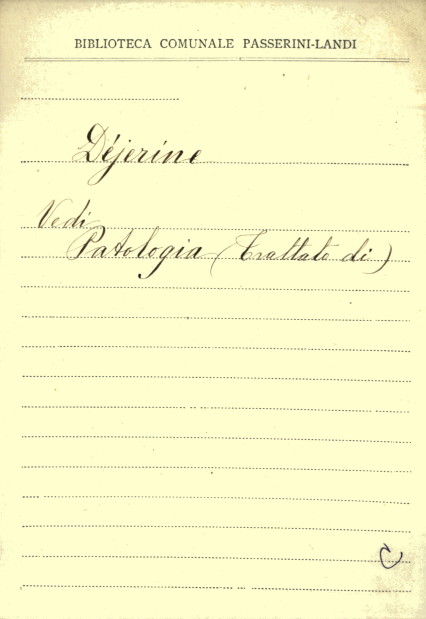 BIBLIOTECA COMUNALE PASSERINI-LANDI
Déjerine
Vedi
Patologia (Trattato di)